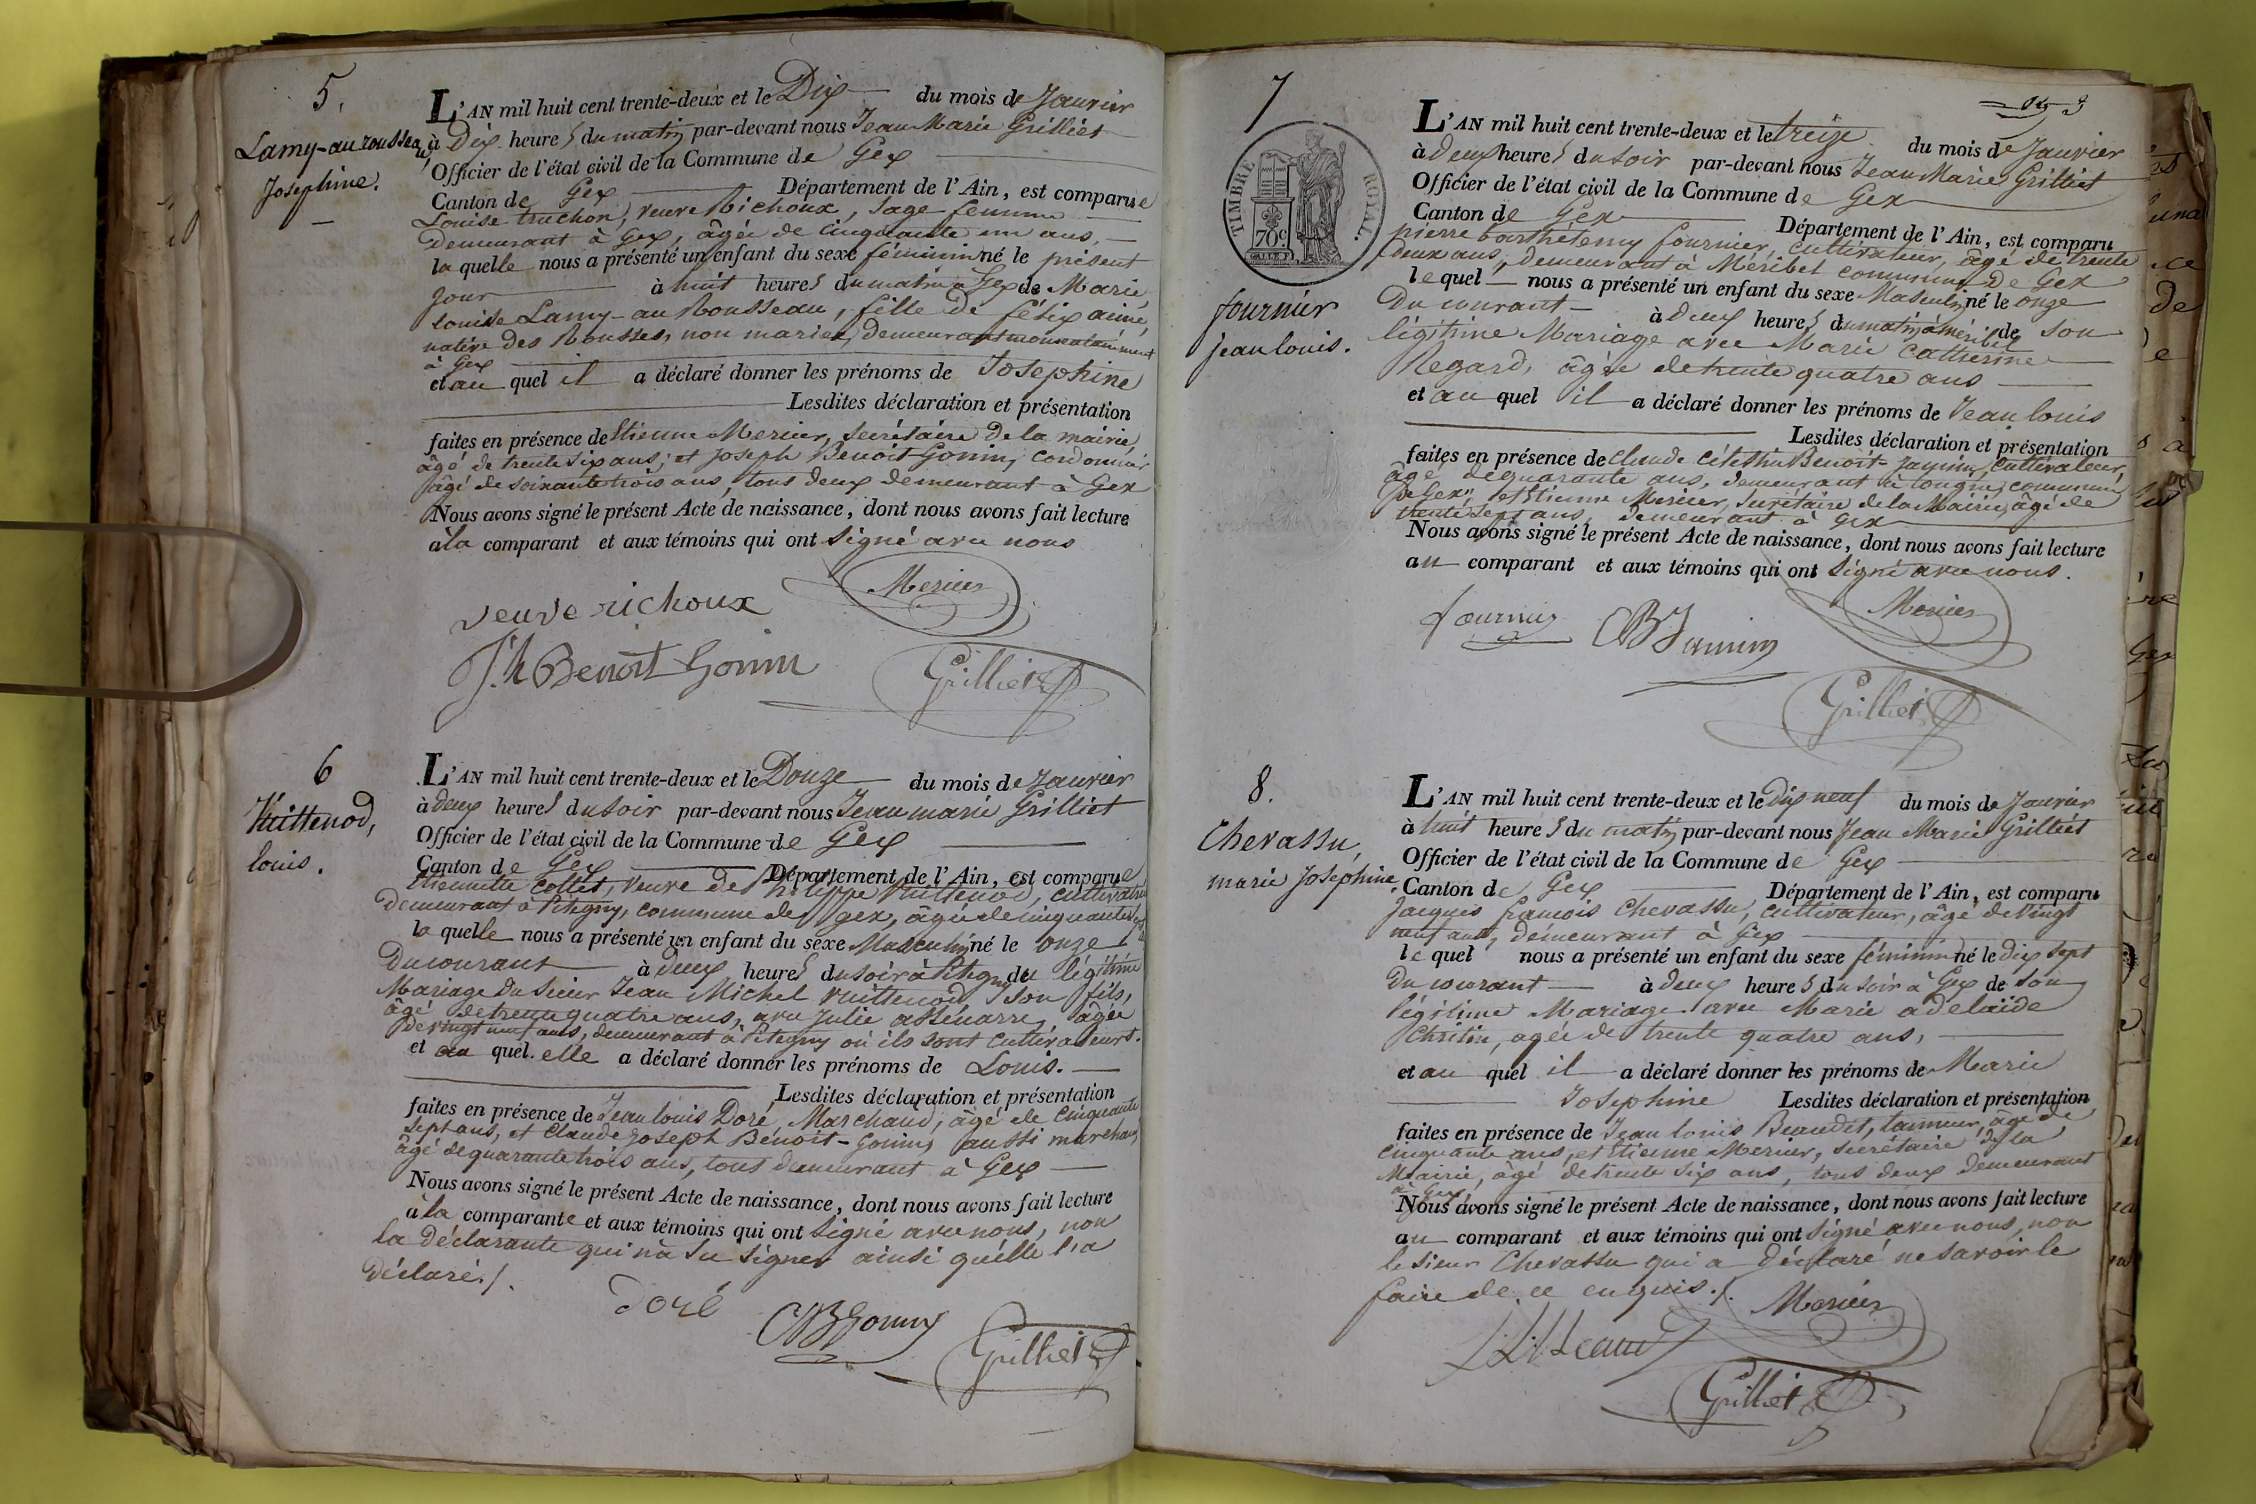 5.
Lamy-au rousseau,
Josephine.
L'AN mil huit cent trente-deux et le Dix du mois de Janvier
à Dix heures du matin par-devant nous Jean Marie Grilliet
Officier de l'état civil de la Commune de Gex
Canton de Gex Département de l'Ain, est comparue
Louise truchon, veuve Richoux, sage femme
demeurant à Gex, âgée de cinquante un ans,
la quelle nous a présenté un enfant du sexe féminin né le présent
jour à huit heures du matin à Gex de Marie
louise Lamy-au Rousseau, fille de félix aimé,
native des Rousses, non mariée, demeurant momentanément
à Gex
et au quel il a déclaré donner les prénoms de Josephine
Lesdites déclaration et présentation
faites en présence de Etienne Mercier, secrétaire de la mairie,
âgé de trente six ans; et Joseph Benoit-Gonin, cordonnier
âgé de soixante trois ans, tous deux demeurant à Gex
Nous avons signé le présent Acte de naissance, dont nous avons fait lecture
à la comparant et aux témoins qui ont signé avec nous
Mercier
veuve richoux
Jh Benoit Gonin
Grilliet
6
Vuittenod,
louis.
L'AN mil huit cent trente-deux et le Douze du mois de Janvier
à deux heures du soir par-devant nous Jean marie Grilliet
Officier de l'état civil de la Commune de Gex
Canton de Gex Département de l'Ain, est comparue
Etiennette Collet, veuve de Philippe Vuittenod, cultivatrice
demeurant à Pitegny, commune de gex, âgée de cinquante
la quelle nous a présenté un enfant du sexe Masculin né le onze
du courant à deux heures du soir à Pitegny du légitime
Mariage du sieur Jean Michel Vuittenod, son fils,
âgé de trente quatre ans, avec Julie assénarre, âgée
de vingt neuf ans, demeurant à Pitegny où ils sont cultivateurs.
et au quel elle a déclaré donner les prénoms de Louis.
Lesdites déclaration et présentation
faites en présence de Jean louis Doré, Marchand, âgé de cinquante
sept ans, et Claude Joseph Benoit-Gonin, aussi marchand
âgé de quarante trois ans, tous demeurant à Gex
Nous avons signé le présent Acte de naissance, dont nous avons fait lecture
à la comparante et aux témoins qui ont signé avec nous, non
la déclarante qui n'a su signer ainsi qu'elle l'a
déclaré./.
Doré
CJBGonin
Grilliet
3
7
TIMBRE ROYAL.
70c
fournier
jean louis.
L'AN mil huit cent trente-deux et le treize du mois de Janvier
à deux heures du soir par-devant nous Jean Marie Grilliet
Officier de l'état civil de la Commune de Gex
Canton de Gex Département de l'Ain, est comparu
pierre barthélemy fournier, cultivateur, âgé de trente
deux ans, demeurant à Méribel commune de Gex
le quel nous a présenté un enfant du sexe Masculin né le onze
du courant à deux heures du matin à Meribel de son
légitime Mariage avec Marie Catherine
Regard, âgée de trente quatre ans
et au quel il a déclaré donner les prénoms de Jean louis
Lesdites déclaration et présentation
faites en présence de Claude Benoit-Janin, cultivateur,
âgé de quarante ans, demeurant à tougin, commune
de Gex, et Etienne Mercier, secrétaire de la Mairie, âgé de
trente sept ans, demeurant à Gex
Nous avons signé le présent Acte de naissance, dont nous avons fait lecture
au comparant et aux témoins qui ont signé avec nous.
fournier
CBJanin
Mercier
Grilliet
8.
Chevassu,
marie Josephine.
L'AN mil huit cent trente-deux et le Dix neuf du mois de Janvier
à huit heures du matin par-devant nous Jean Marie Grilliet
Officier de l'état civil de la Commune de Gex
Canton de Gex Département de l'Ain, est comparu
Jacques françois Chevassu, cultivateur, âgé de vingt
neuf ans, demeurant à Gex
le quel nous a présenté un enfant du sexe féminin né le dix sept
du courant à deux heures du soir à Gex de son
légitime Mariage avec Marie adelaïde
Chritin, agée de trente quatre ans,
et au quel il a déclaré donner les prénoms de Marie
Josephine Lesdites déclaration et présentation
faites en présence de Jean louis Beaudet, tanneur, âgé de
cinquante ans, et Etienne Mercier, secrétaire de la
Mairie, âgé de trente six ans, tous deux demeurant
à Gex,
Nous avons signé le présent Acte de naissance, dont nous avons fait lecture
au comparant et aux témoins qui ont signé avec nous, non
le sieur Chevassu qui a déclaré ne savoir le
faire de ce enquis./.
Mercier
Grilliet